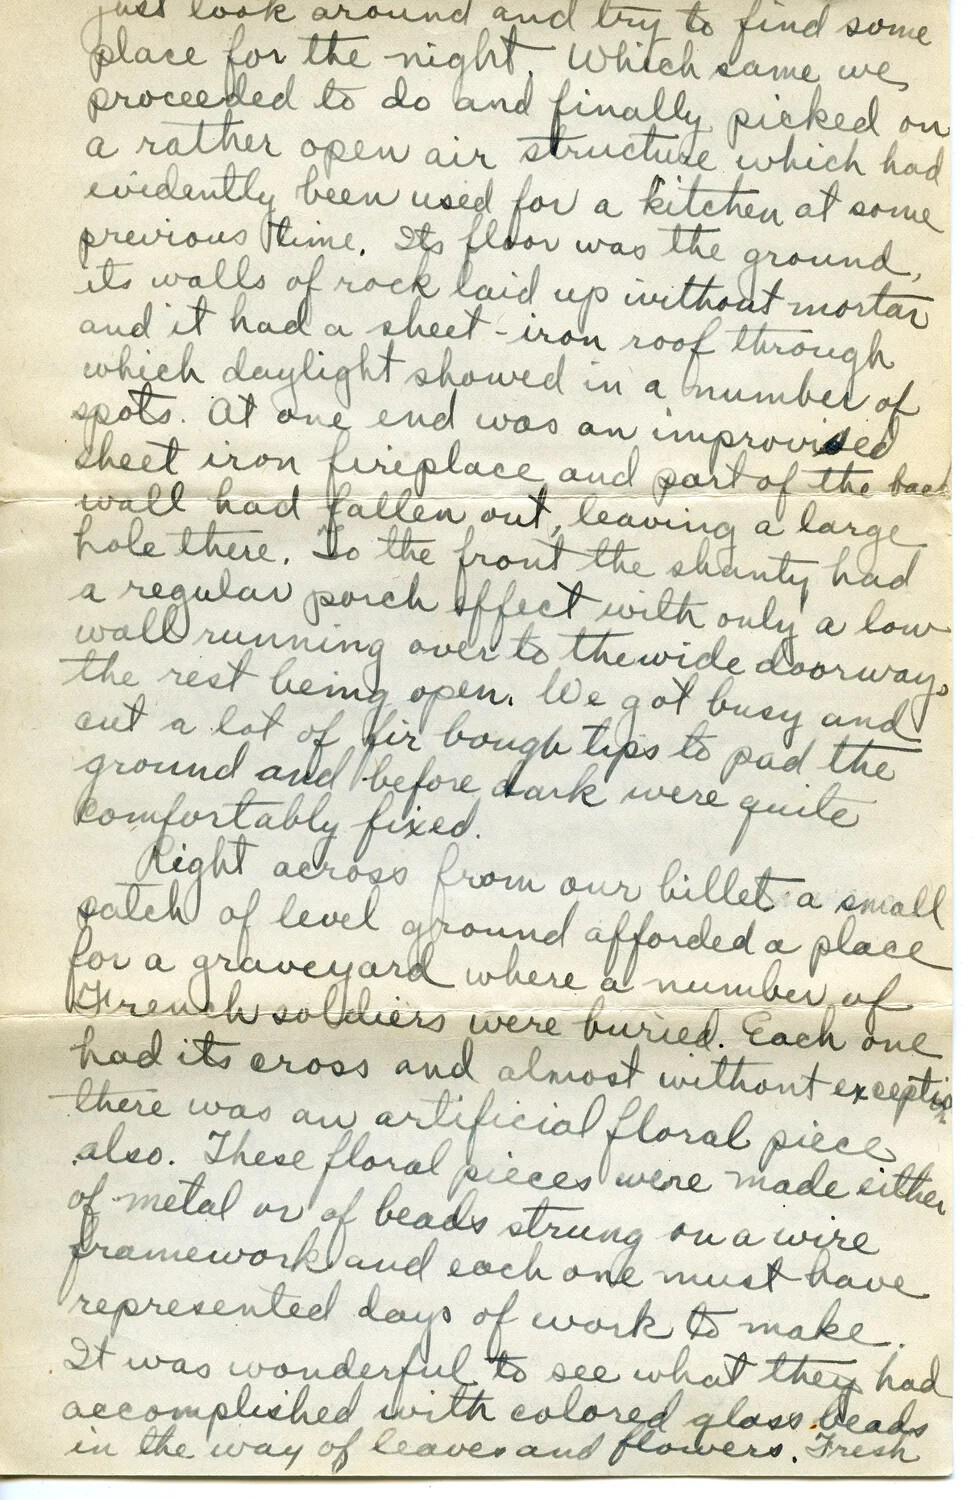 just look around and try to find some
place for the night. Which same we
proceeded to do and finally picked on
a rather open air structure which had
evidently been used for a kitchen at some
previous time. Its floor was the ground,
its walls of rock laid up without mortar
and it had a sheet-iron roof through
which daylight showed in a number of
spots. At one end was an improvised
sheet iron fireplace and part of the back
wall had fallen out, leaving a large
hole there. To the front the shanty had
a regular porch effect with only a low
wall running over to the wide doorway,
the rest being open. We got busy and
cut a lot of fir bough tips to pad the
ground and before dark were quite
comfortably fixed.
Right across from our billet a small
patch of level ground afforded a place
for a graveyard where a number of
French soldiers were buried. Each one
had its cross and almost without exception
there was an artificial floral piece
also. These floral pieces were made either
of metal or of beads strung on a wire
framework and each one must have
represented days of work to make.
It was wonderful to see what they had
accomplished with colored glass beads
in the way of leaves and flowers. Fresh